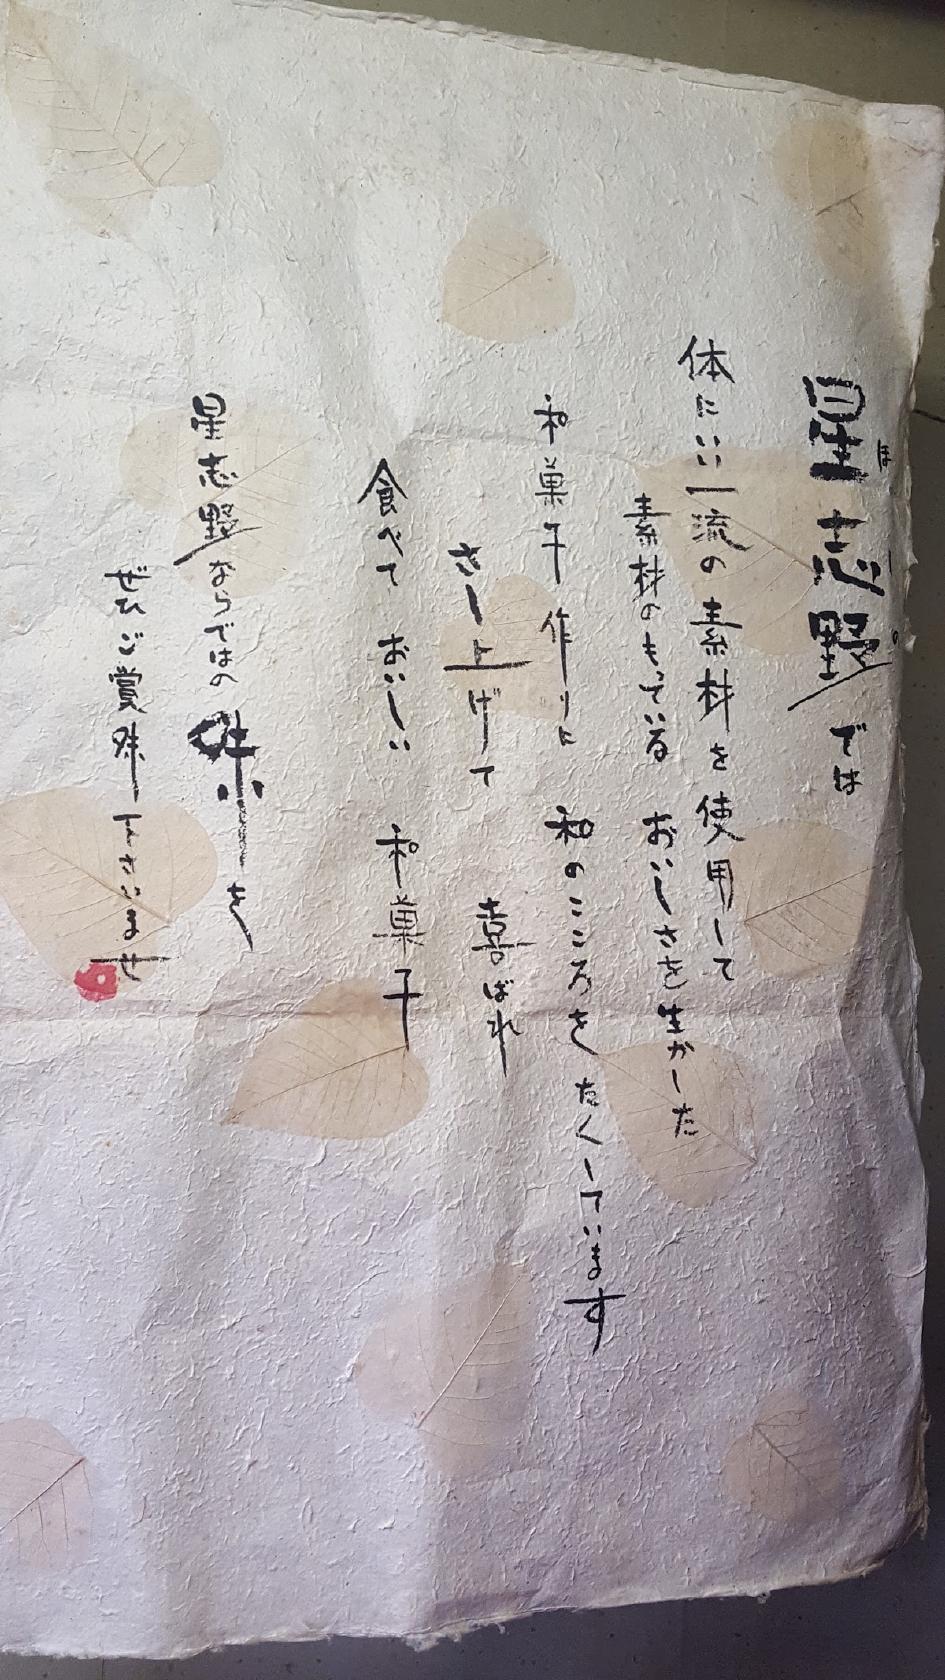 星志野では
体にいい一流の素材を使用して
素材のもっている おいしさを生かした
和菓子作りに 和のこころをたくしています
さし上げて 喜ばれ
食べて おいしい 和菓子
星志野ならではの味を
ぜひご賞味下さいませ